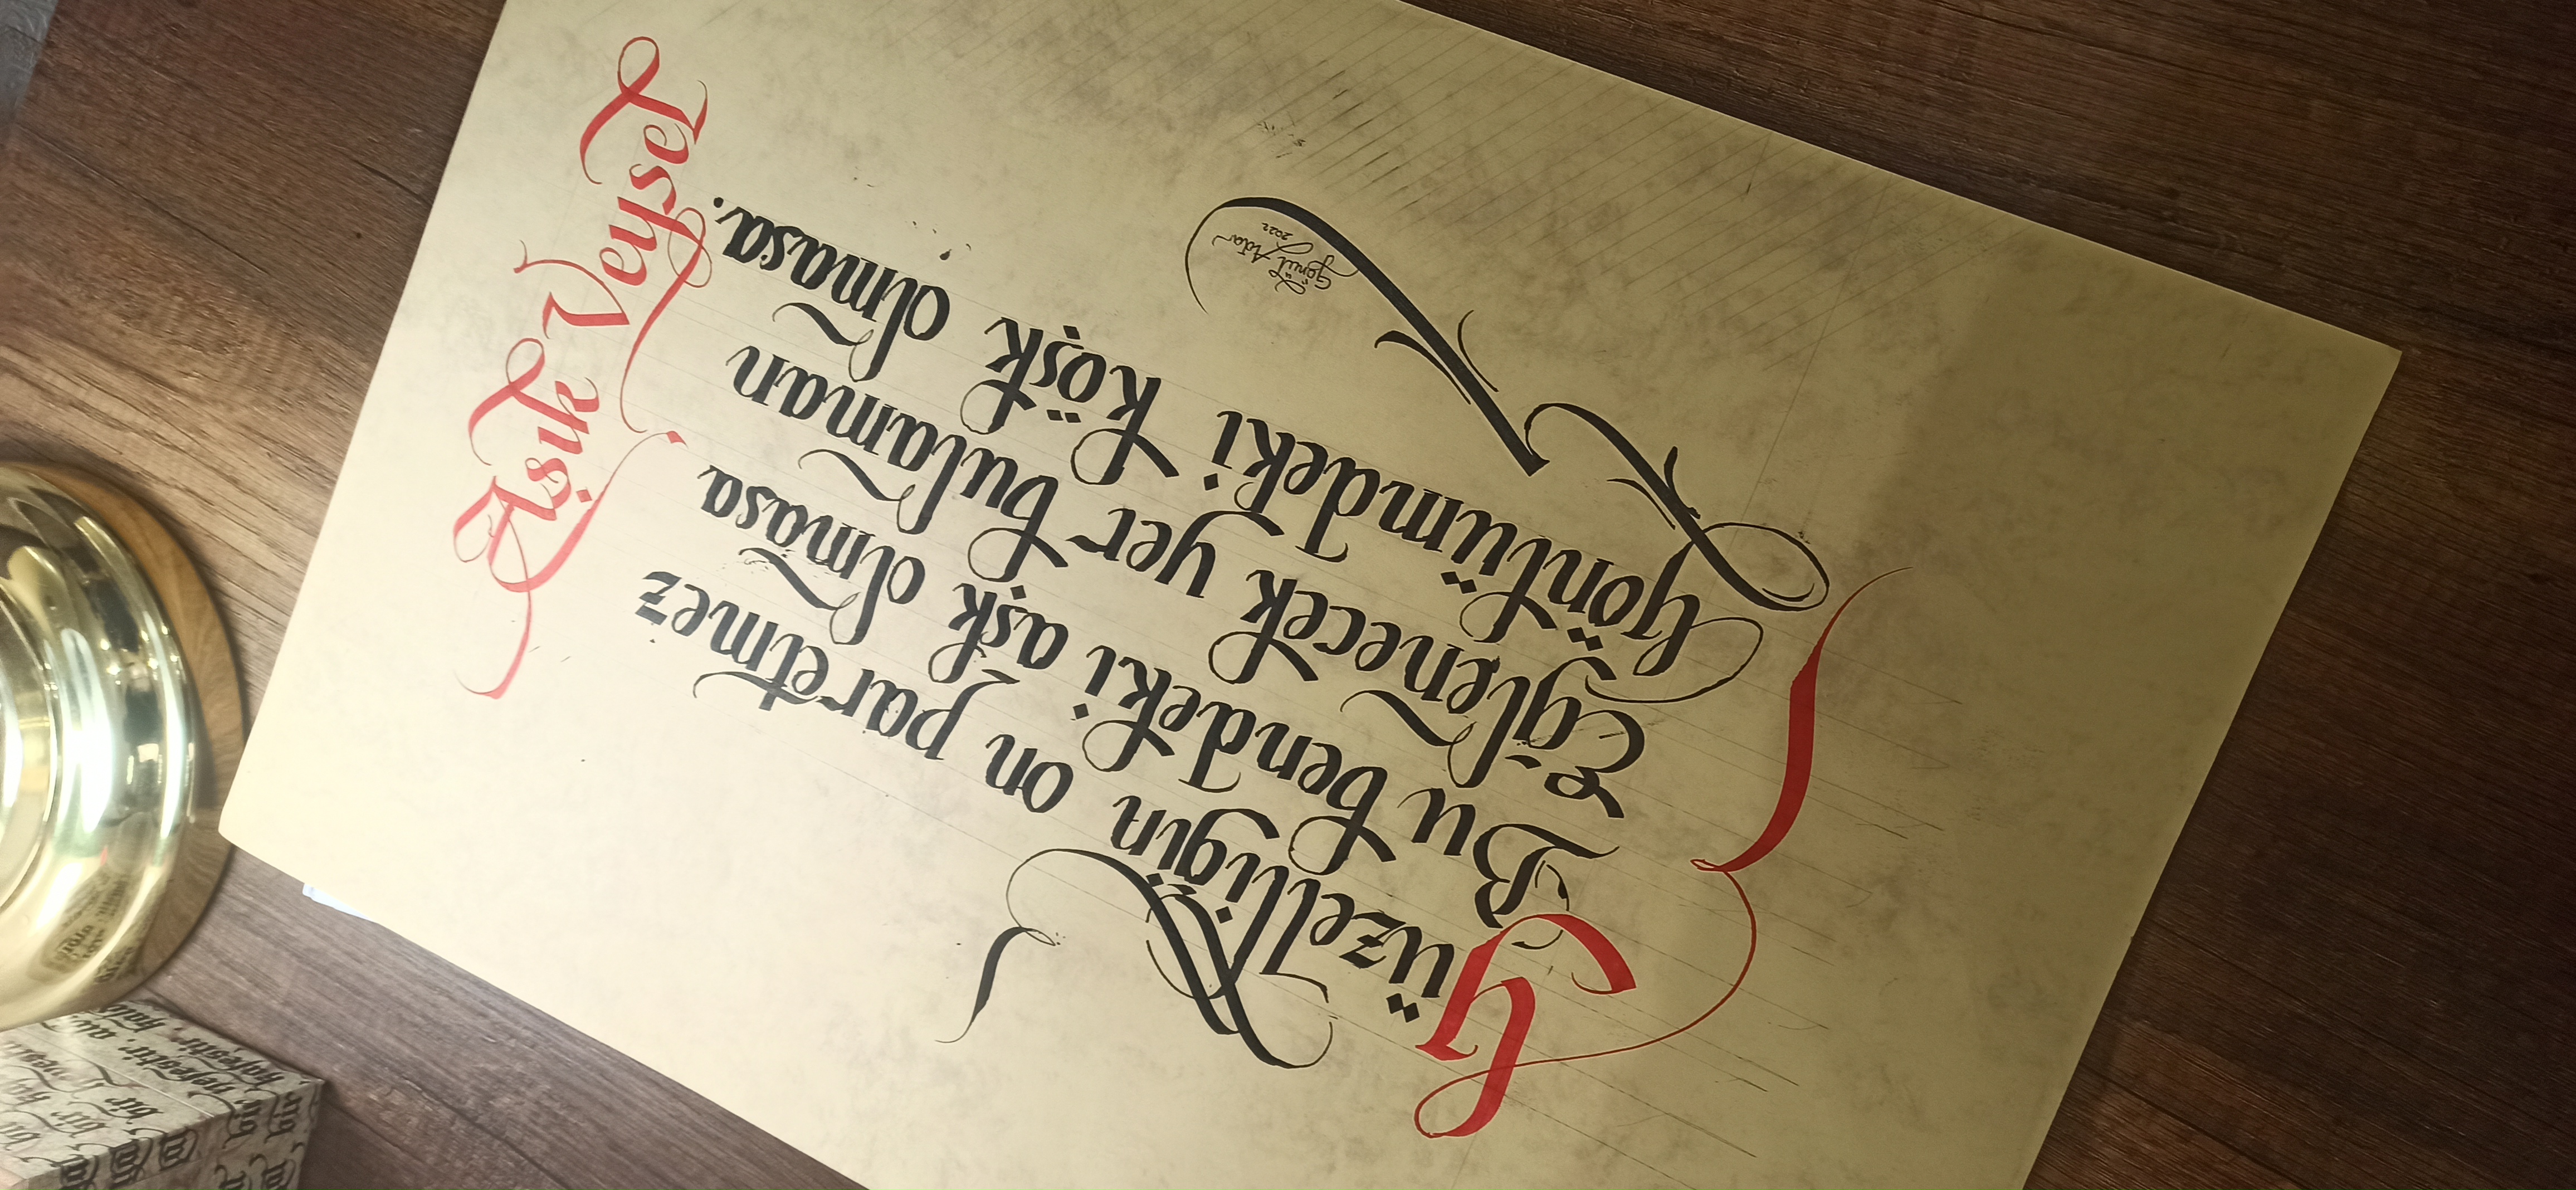 Güzelliğin on par etmez
Bu bendeki aşk olmasa
Eğlenecek yer bulaman
Gönlümdeki köşk olmasa.
Aşık Veysel
2022